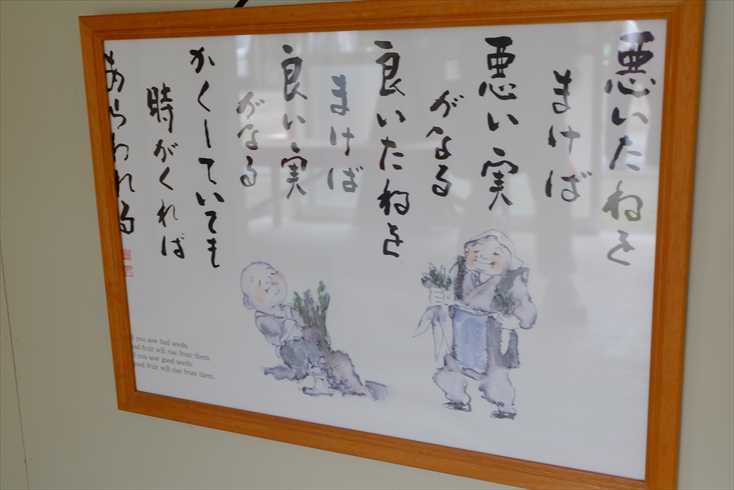 悪いたねを
まけば
悪い実
がなる
良いたねを
まけば
良い実
がなる
かくしていても
時がくれば
あらわれる
f you sow bad seeds,
bad fruit will rise from them.
f you sow good seeds,
good fruit will rise from them.